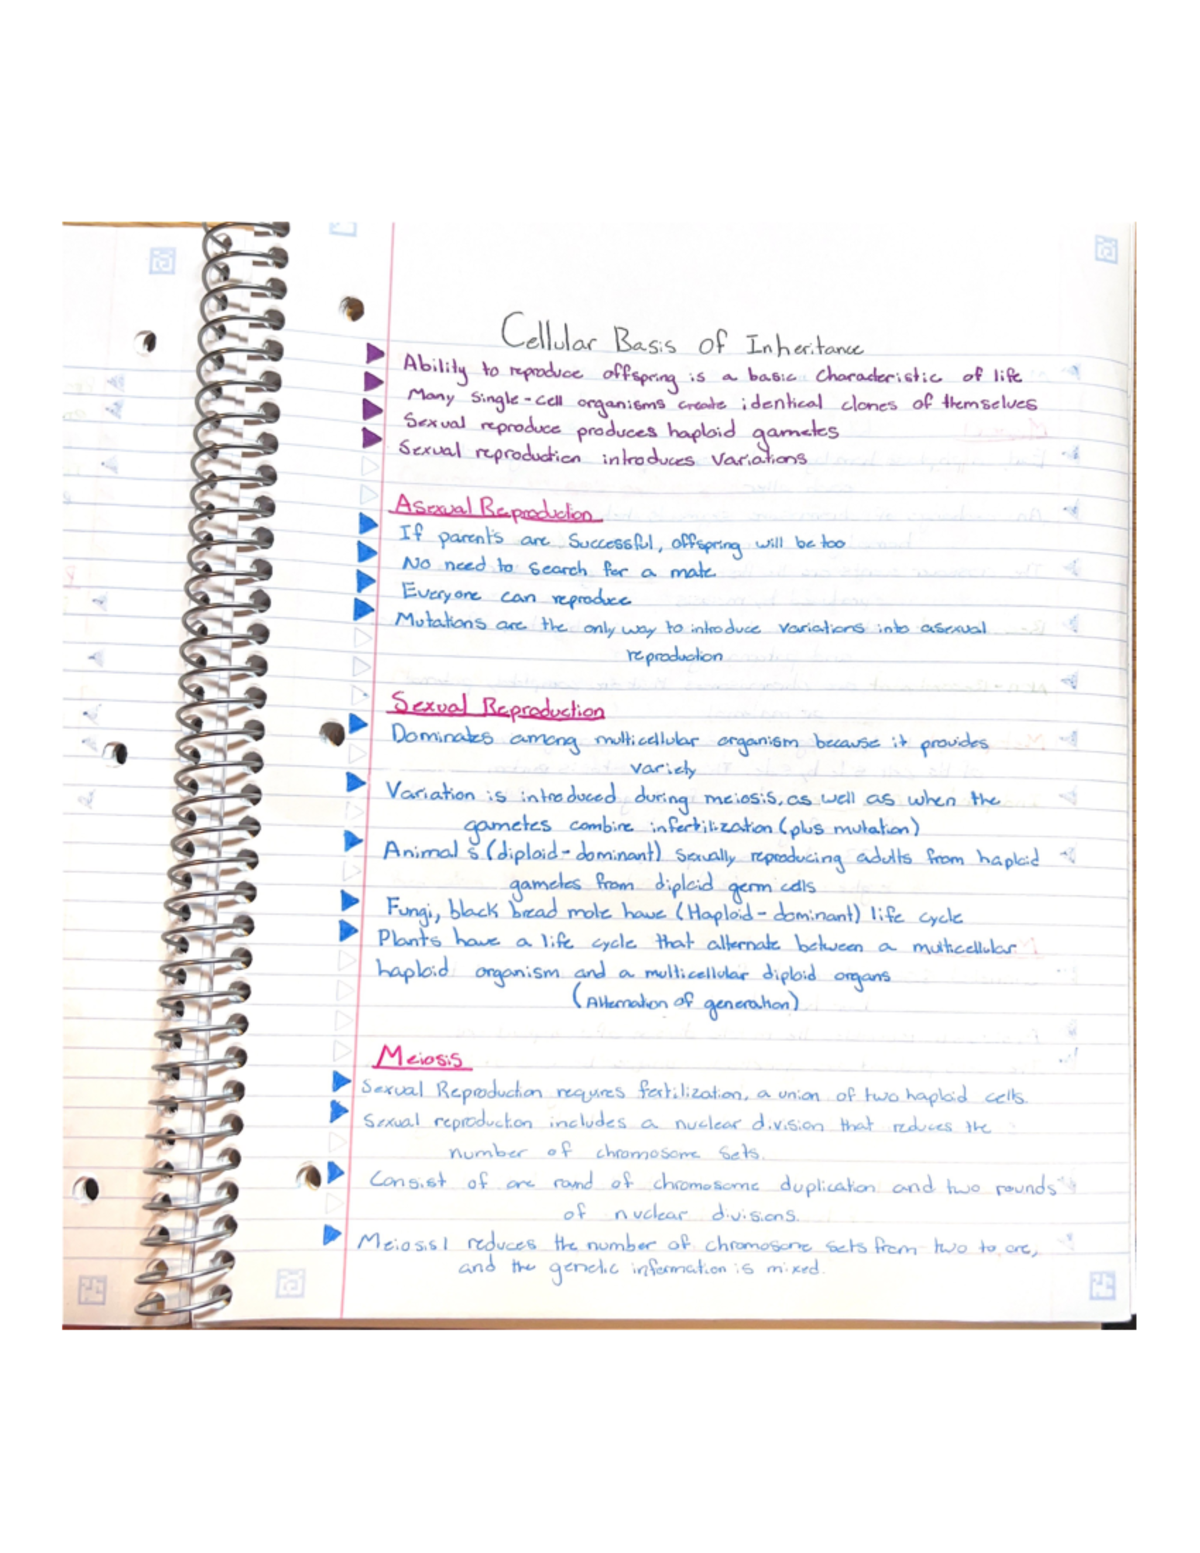 Cellular Basis of Inheritance
Ability to reproduce offspring is a basic characteristic of life
Many Single-cell organisms create identical clones of themselves
Sexual reproduce produces haploid gametes
Sexual reproduction introduces Variations
Asexual Reproduction
If parents are Successful, offspring will be too
No need to search for a mate
Everyone can reproduce
Mutations are the only way to introduce variations into asexual
reproduction
Sexual Reproduction
Dominates among multicellular organism because it provides
variety
Variation is introduced during meiosis, as well as when the
gametes combine in fertilization (plus mutation)
Animal's (diploid-dominant) Sexually reproducing adults from haploid
gametes from diploid germ cells
Fungi, black bread mole have (Haploid-dominant) life cycle
Plants have a life cycle that alternate between a multicellular
haploid organism and a multicellular diploid organs
(Alternation of generation)
Meiosis
Sexual Reproduction requires fertilization, a union of two haploid cells.
Sexual reproduction includes a nuclear division that reduces the
number of chromosome sets.
Consist of one round of chromosome duplication and two rounds
of nuclear divisions.
Meiosis 1 reduces the number of chromosome sets from two to one,
and the genetic information is mixed.